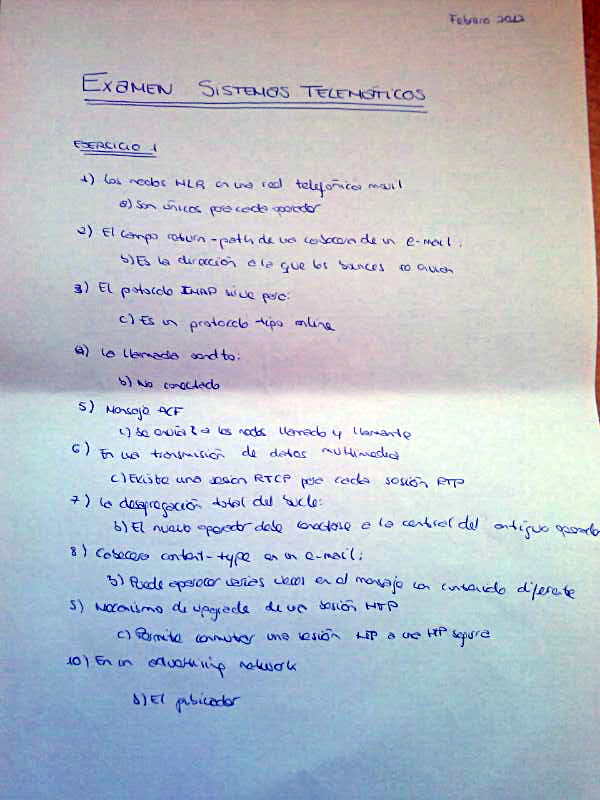 Febrero 2012
EXAMEN SISTEMAS TELEMÁTICOS
EJERCICIO 1
1) Los nodos HLR en una red telefónica movil
a) Son únicos para cada operador
2) El campo return-path de una cabecera de un e-mail:
b) Es la dirección a la que los bounces se
3) El protocolo IMAP sirve para:
c) Es un protocolo tipo online
4) La llamada sendto:
b) No conectado
5) Mensaje ACF
c) Se envía a los nodos llamado y llamante
6) En una transmisión de datos multimedia
c) Existe una sesión RTCP para cada sesión RTP
7) La desagregación total del bucle:
b) El nuevo operador debe conectarse a la central del antiguo operador
8) Cabecera content-type en un e-mail:
b) Puede aparecer varias veces en el mensaje con contenido diferente
9) Mecanismo de upgrade de una sesión HTTP
c) Permite conmutar una sesión HTTP a una HTTP segura
10) En un advertising network
d) El publicador